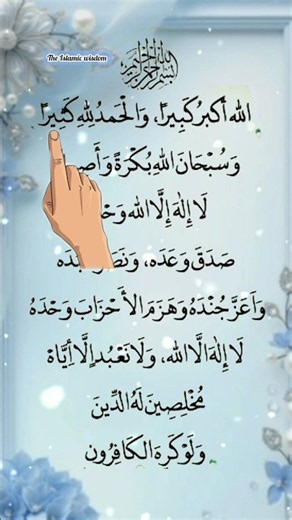 بسم الله الرحمن الرحيم
The Islamic wisdom
الله أكبر كَبِيرًا، وَالْحَمدُ لِلهِ كَثِيرًا
وَسُبْحَانَ اللهِ بُكْرَةً
لَا إِلٰهَ إِلَّا الله
صَدَقَ وَعَدَه، وَنَصَ
وَاَعَزَّ جُنْدَهُ وَهَزَمَ الأَحْزَابَ وَحْدَهُ
لَا إِلٰهَ اِلَّا الله، وَلَا نَعْبُدُ اِلَّا أِيَّاهُ
مُخْلِصِينَ لَهُ الدِّينَ
وَلَوْ كَرِهَ الكَافِرُون